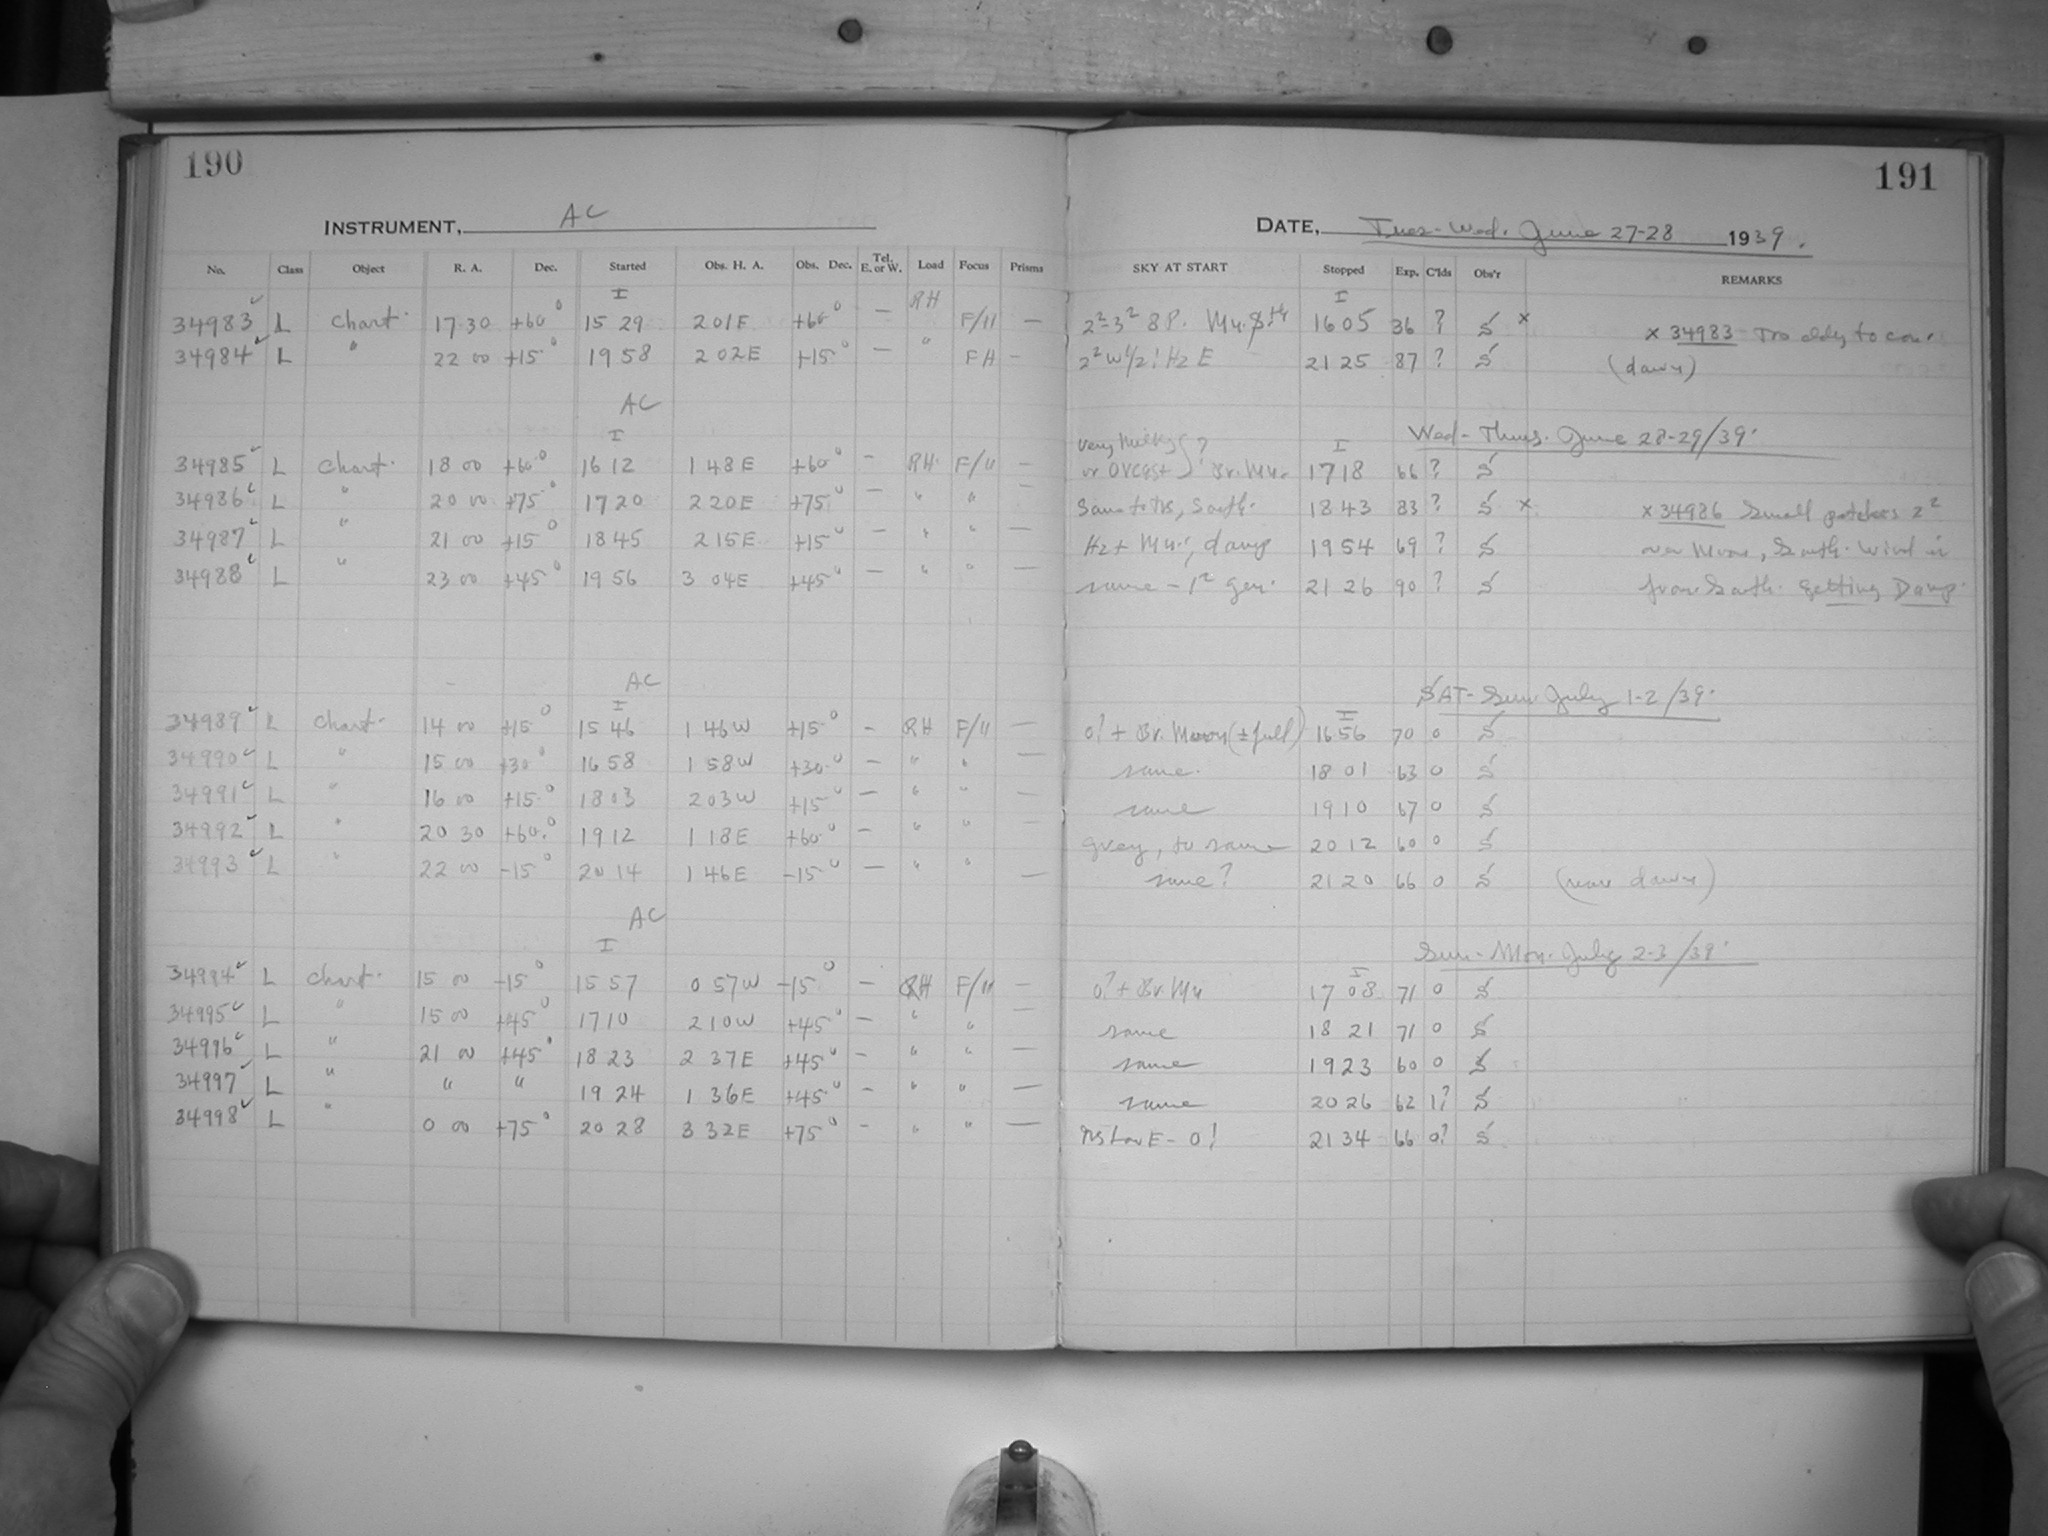 190
INSTRUMENT, AC
No. Class Object R. A. Dec. Started Obs. H. A. Obs. Dec. Tel. E. or W. Load Focus Prisms
I RH
34983 L Chart. 17 30 +60° 15 29 2 01E +60° — F/11 —
34984 L " 22 00 +15° 19 58 2 02E +15° — " FH —
AC
I
34985 L Chart. 18 00 +60° 16 12 1 48E +60° — RH F/11 —
34986 L " 20 00 +75° 17 20 2 20E +75° — " " —
34987 L " 21 00 +15° 18 45 2 15E +15° — " " —
34988 L " 23 00 +45° 19 56 3 04E +45° — " " —
AC
I
34989 L Chart. 14 00 +15° 15 46 1 46W +15° — RH F/11 —
34990 L " 15 00 +30° 16 58 1 58W +30° — " " —
34991 L " 16 00 +15° 18 03 2 03W +15° — " " —
34992 L " 20 30 +60° 19 12 1 18E +60° — " " —
34993 L " 22 00 -15° 20 14 1 46E -15° — " " —
AC
I
34994 L Chart. 15 00 -15° 15 57 0 57W -15° — RH F/11 —
34995 L " 15 00 +45° 17 10 2 10W +45° — " " —
34996 L " 21 00 +45° 18 23 2 37E +45° — " " —
34997 L " " " 19 24 1 36E +45° — " " —
34998 L " 0 00 +75° 20 28 3 32E +75° — " " —
191
DATE, Tues-Wed. June 27-28 1939.
SKY AT START Stopped Exp. C'lds Obs'r REMARKS
I
2²-3² 8P. Mn. 16 05 36 ? S x x 34983 Too cldy to con.
2² W½! Hz E 21 25 87 ? S (dawn)
Wed-Thurs. June 28-29/39.
very milky ? I
or overcast Br. Mn. 17 18 66 ? S
same to NS, South. 18 43 83 ? S x x 34986 Small patches 2²
Hz + Mn., damp 19 54 69 ? S over Moon, South. Wind is
same - 1² gen. 21 26 90 ? S from South. Getting Damp.
SAT-Sun July 1-2/39.
I
0! + Br. Moon (± full) 16 56 70 0 S
same. 18 01 63 0 S
same 19 10 67 0 S
grey, to same 20 12 60 0 S
same? 21 20 66 0 S (near dawn)
Sun-Mon. July 2-3/39.
I
0! + Br. Mn 17 08 71 0 S
same 18 21 71 0 S
same 19 23 60 0 S
same 20 26 62 1? S
NS low E - 0! 21 34 66 0? S